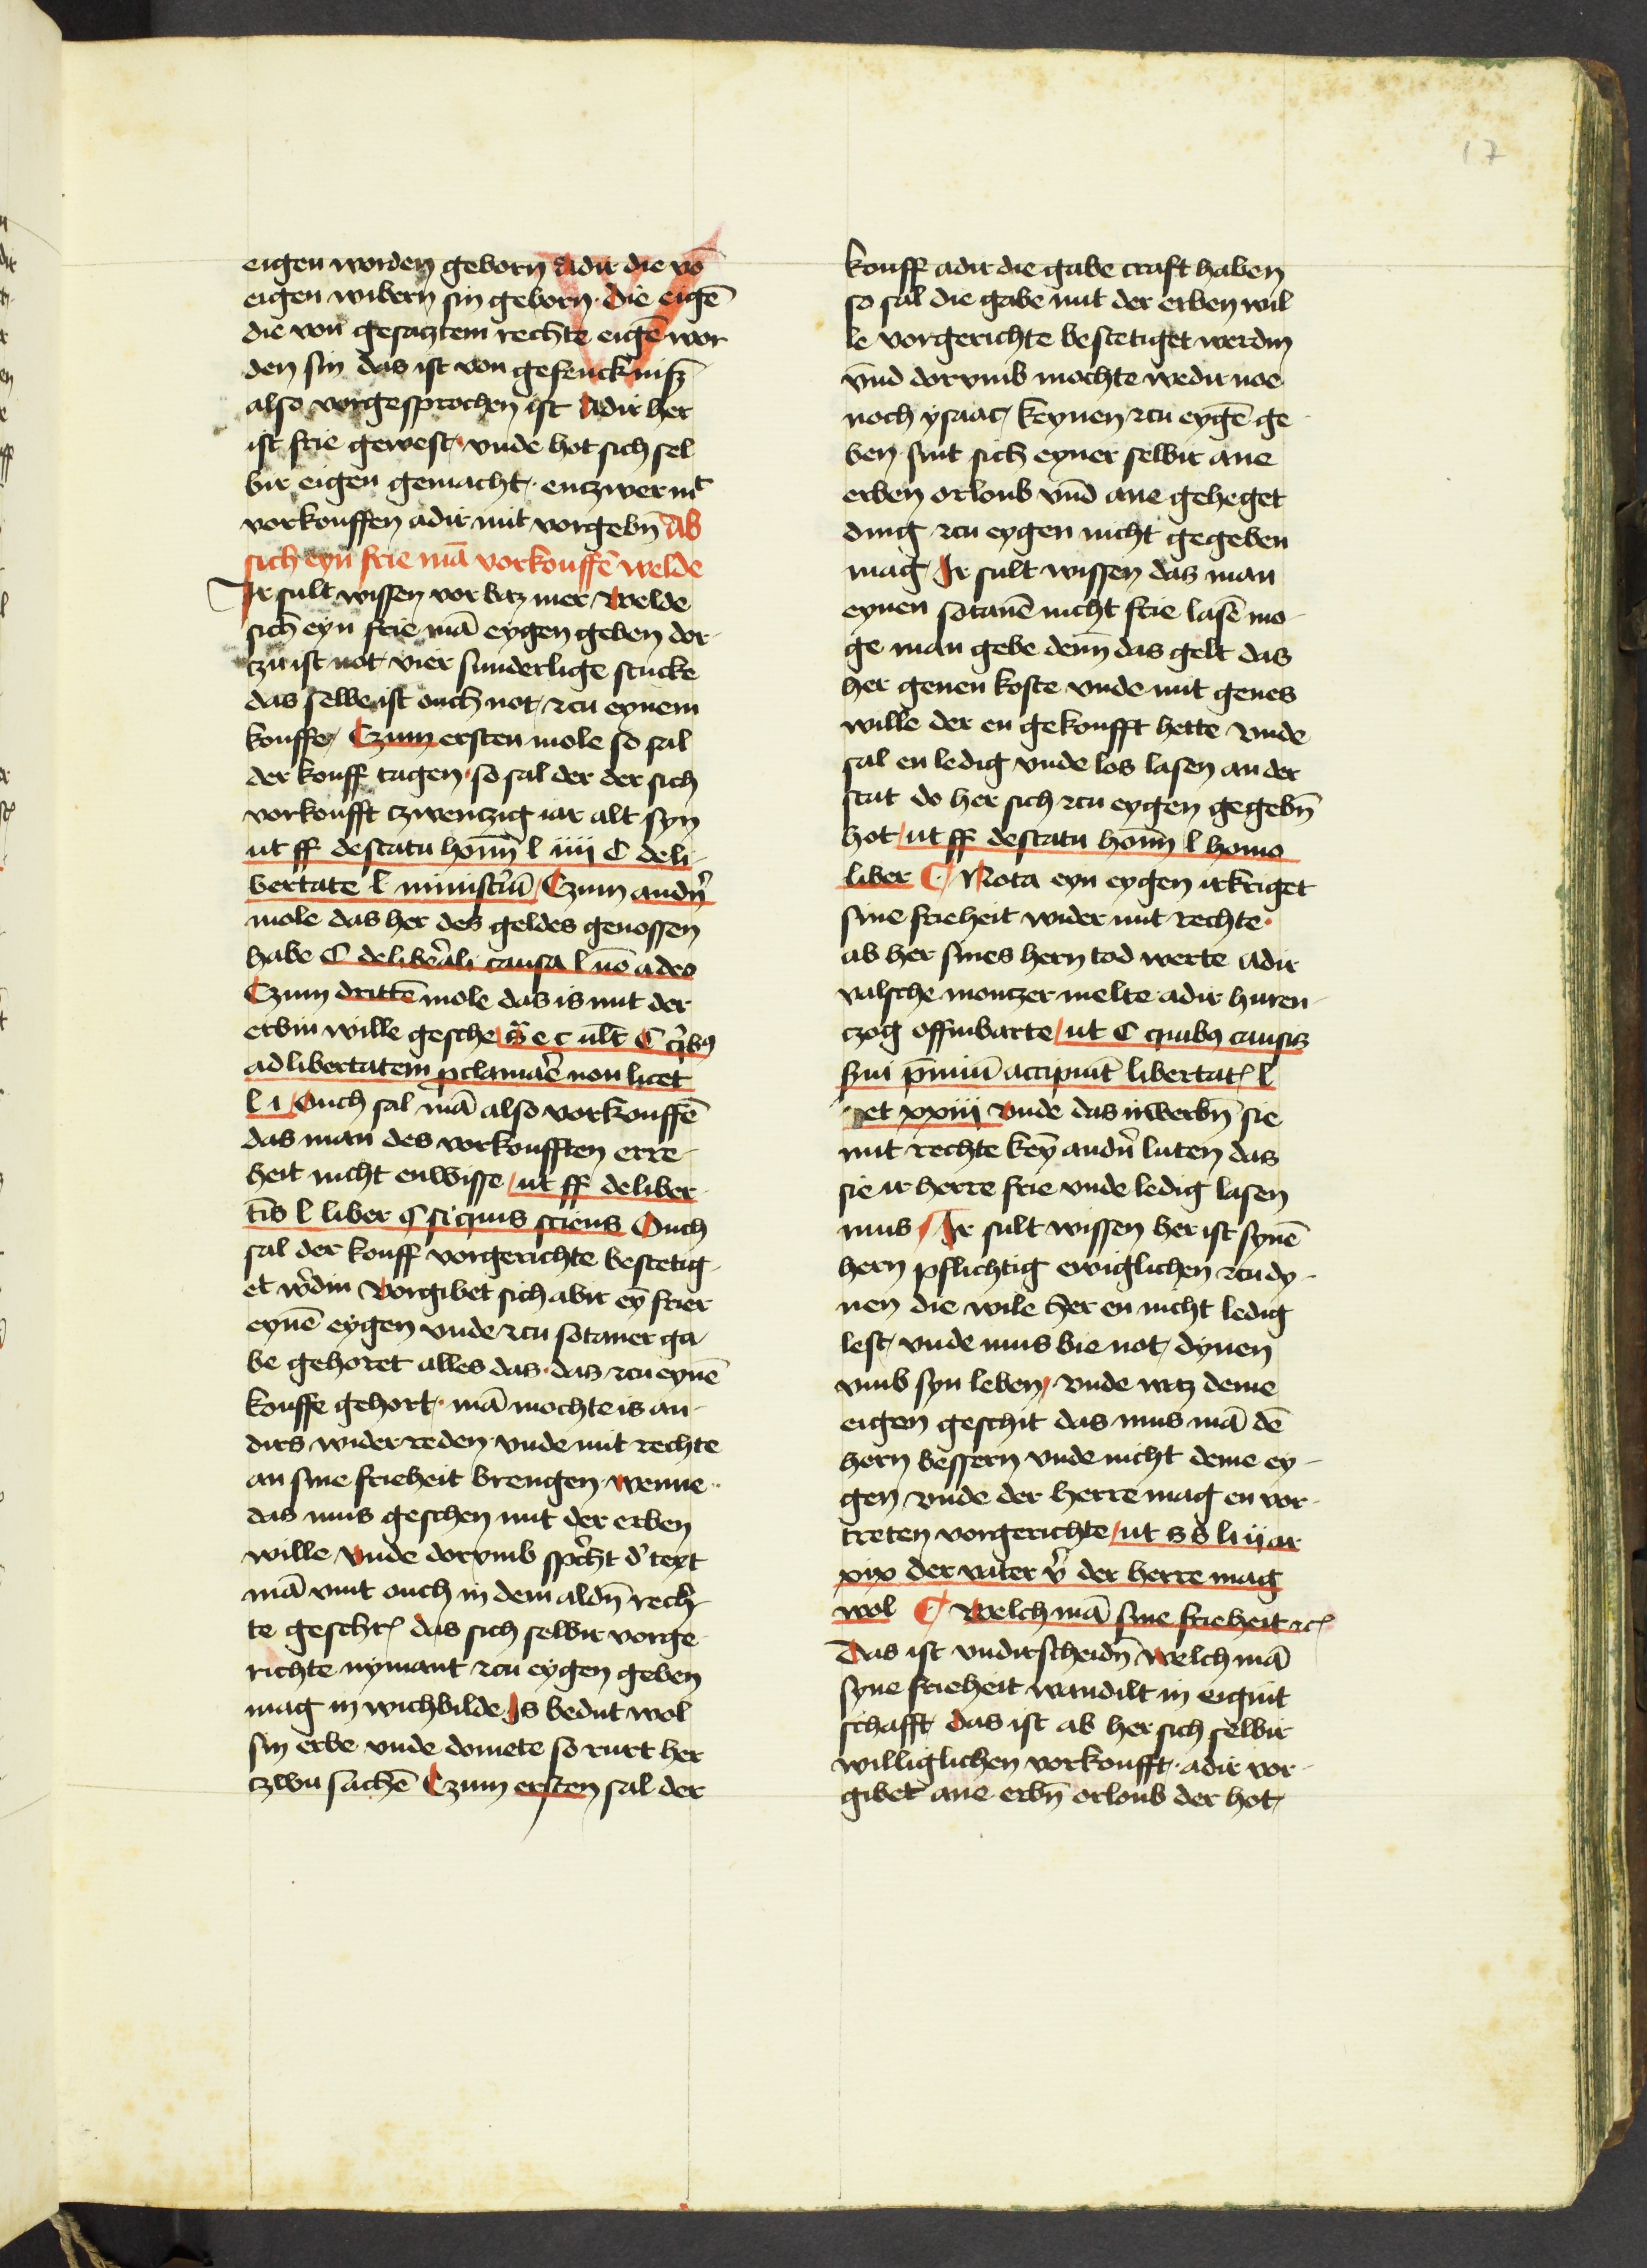 17
eigen worden geborn Adir die vō
eigen wibern sin geborn · die eigē
die von gesatztem rechte eigē wor
den sin das ist von gefenckniß
also vorgesprochen ist Adir her
ist frie gewest vnde hot sich sel
bir eigen gemacht · entzwer mit
vorkouffen adir mit vorgebn̄ Ab
sich eyn frie mā vorkouffē welde
Ir sult wissen vor baz mer Welde
sich eyn frie mā eygen geben dor-
tzu ist not vier sunderlige stucke
das selbe ist ouch not zcu eynem
kouffe Czum ersten mole so sal
der kouff tagen · so sal der der sich
vorkoufft czwenczig iar alt syn
ut ff de statu homī l iiij C de li-
bertate l ministrū Czum andn̄
mole das her des geldes genossen
habe C de liberali causa l nō adeo
Czum drittē mole das is mit der
erbin wille gesche e c ult C qibꝯ
ad libertatem ꝓclamare non licet
l i Ouch sal mā also vorkouffē
das man des vorkoufften erre-
heit nicht enwisse ut ff de liber
l liber § si quis sciens Ouch
sal der kouff vorgerichte bestetig-
et w̄din Vorgibet sich abir eȳ frier
eynē eygen vnde zcu sotaner ga
be gehoret alles das · das zcu eynē
kouffe gehort · mā mochte is an-
dirs wider reden vnde mit rechte
an sine frieheit brengen wenne
das mus geschen mit der erben
wille Vnde dorvmb spricht d' text
mā vint ouch in dem aldn̄ rech-
te geschr̄ das sich selbir vorge
richte nymant zcu eygen geben
mag in wichbilde Is bedut wol
sin erbe vnde domete so rurt her
czwu sachē Czum ersten sal der
kouff adir die gabe craft haben
so sal die gabe mit der erben wil
le vorgerichte bestetiget werdin
vnd dorvmb mochte wedir noe
noch ysaac keynen zcu eygē ge
ben sint sich eyner selbir ane
erben orloub vnd ane geheget
ding zcu eygen nicht gegeben
mag Ir sult wissen das man
eynen sotanē nicht frie lasē mo-
ge man gebe denn̄ das gelt das
her genen koste vnde mit genes
wille der en gekoufft hette vnde
sal en ledig vnde los lasen an der
stat do her sich zcu eygen gegebn̄
hot ut ff de statu homī l homo
liber C Nota eyn eygen irkriget
sine frieheit wider mit rechte ·
ab her sines hern tod werte adir
valsche montzer melte adir huren-
czog offinbarte ut C quibꝯ causis
sui p̄miū accipiūt libertat̄ l
et xxiiij Vnde das irwerbn̄ sie
mit rechte keȳ andn̄ luten das
sie ir herre frie vnde ledig lasen
mus Ir sult wissen her ist synē
hern pflichtig ewiglichen zcu dy-
nen die wile her en nicht ledig
lest vnde mus bie not dynen
vmb syn leben vnde waz deme
eigen geschit das mus mā dē
hern bessern vnde nicht deme ey-
gen vnde der herre mag en vor-
treten vorgerichte ut s s li ij ar
xix der vater v̄ der herre mag
wol C Welch mā sine frieheit zc̄
Das ist vndirscheidn̄ Welch mā
syne frieheit wandilt in eigint
schafft das ist ab her sich selbir
williglichen vorkoufft · adir vor-
gibet ane erbn̄ orloub der hot